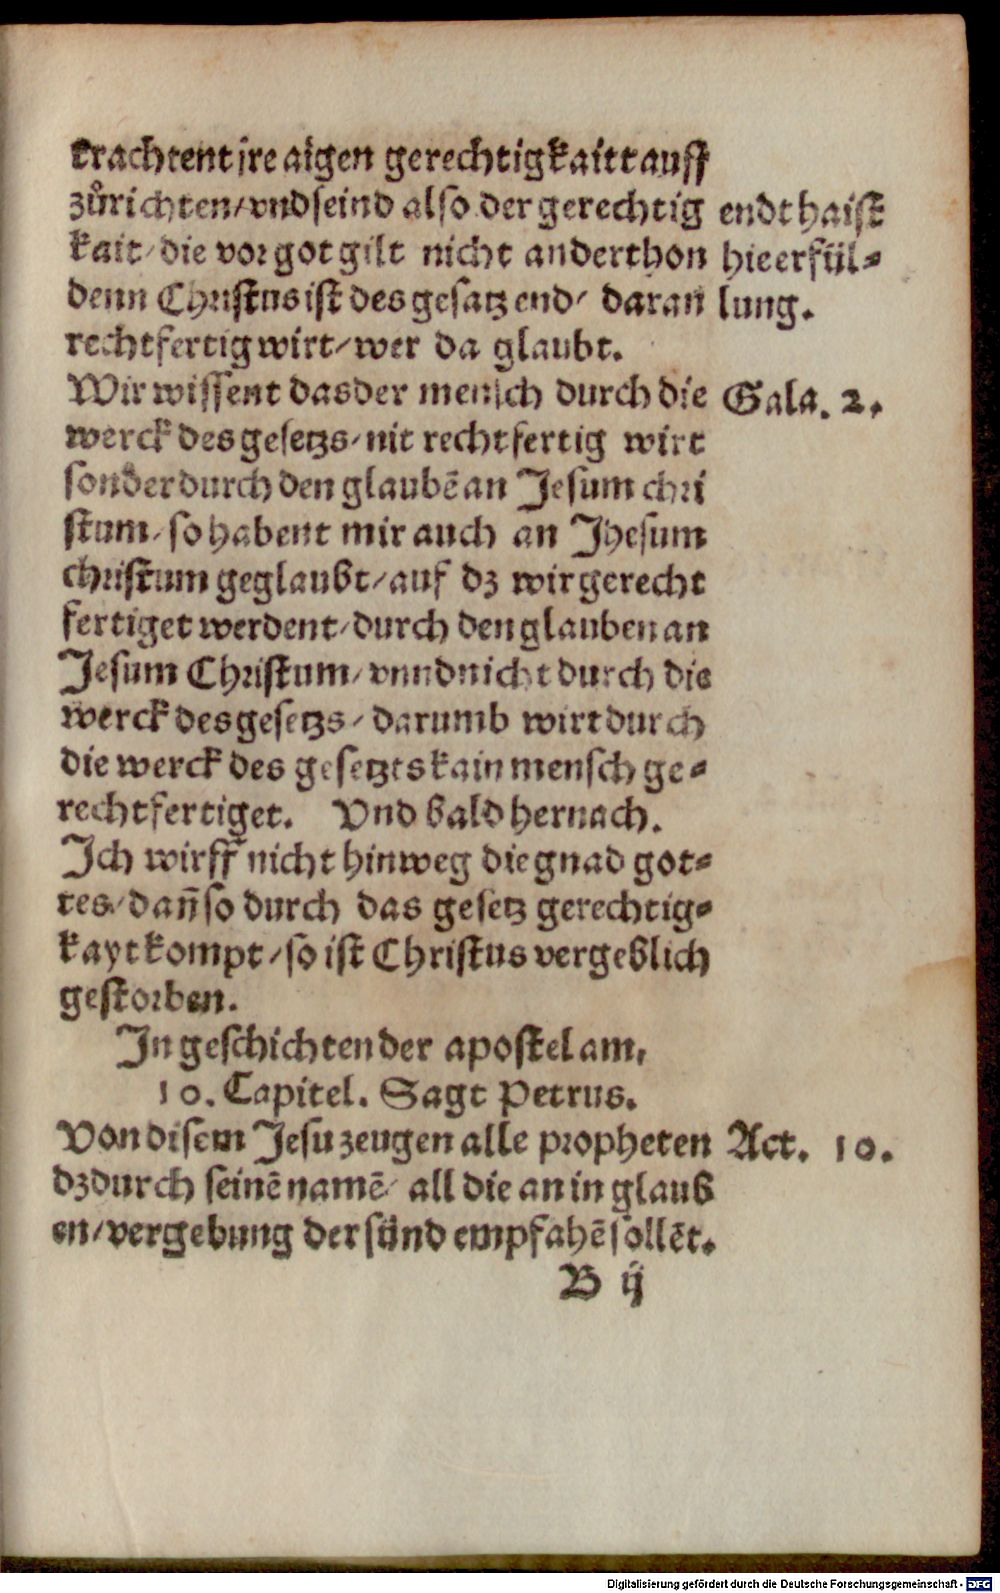 trachtent jre aigen gerechtigkaitt auff
zůrichten/ vnd seind also der gerechtig
kait/ die vor got gilt nicht anderthon
denn Christus ist des gesatz end/ daran
rechtfertig wirt/ wer da glaubt.
endt haist
hie erfül-
lung.
Wir wissent das der mensch durch die
werck des gesetzs/ nit rechtfertig wirt
sonder durch den glaubē an Jesum chri
stum/ so habent mir auch an Jhesum
christum geglaubt/ auf dz wir gerecht
fertiget werdent/ durch den glauben an
Jesum Christum/ vnnd nicht durch die
werck des gesetzs/ darumb wirt durch
die werck des gesetzts kain mensch ge-
rechtfertiget. Vnd bald hernach.
Gala. 2.
Ich wirff nicht hinweg die gnad got-
tes/ dañ so durch das gesetz gerechtig-
kayt kompt/ so ist Christus vergeblich
gestorben.
In geschichten der apostel am,
10. Capitel. Sagt Petrus.
Von disem Jesu zeugen alle propheten
dz durch seinē namē/ all die an in glaub
en/ vergebung der sünd empfahē sollēt.
Act. 10.
B ij
Digitalisierung gefördert durch die Deutsche Forschungsgemeinschaft - DFG